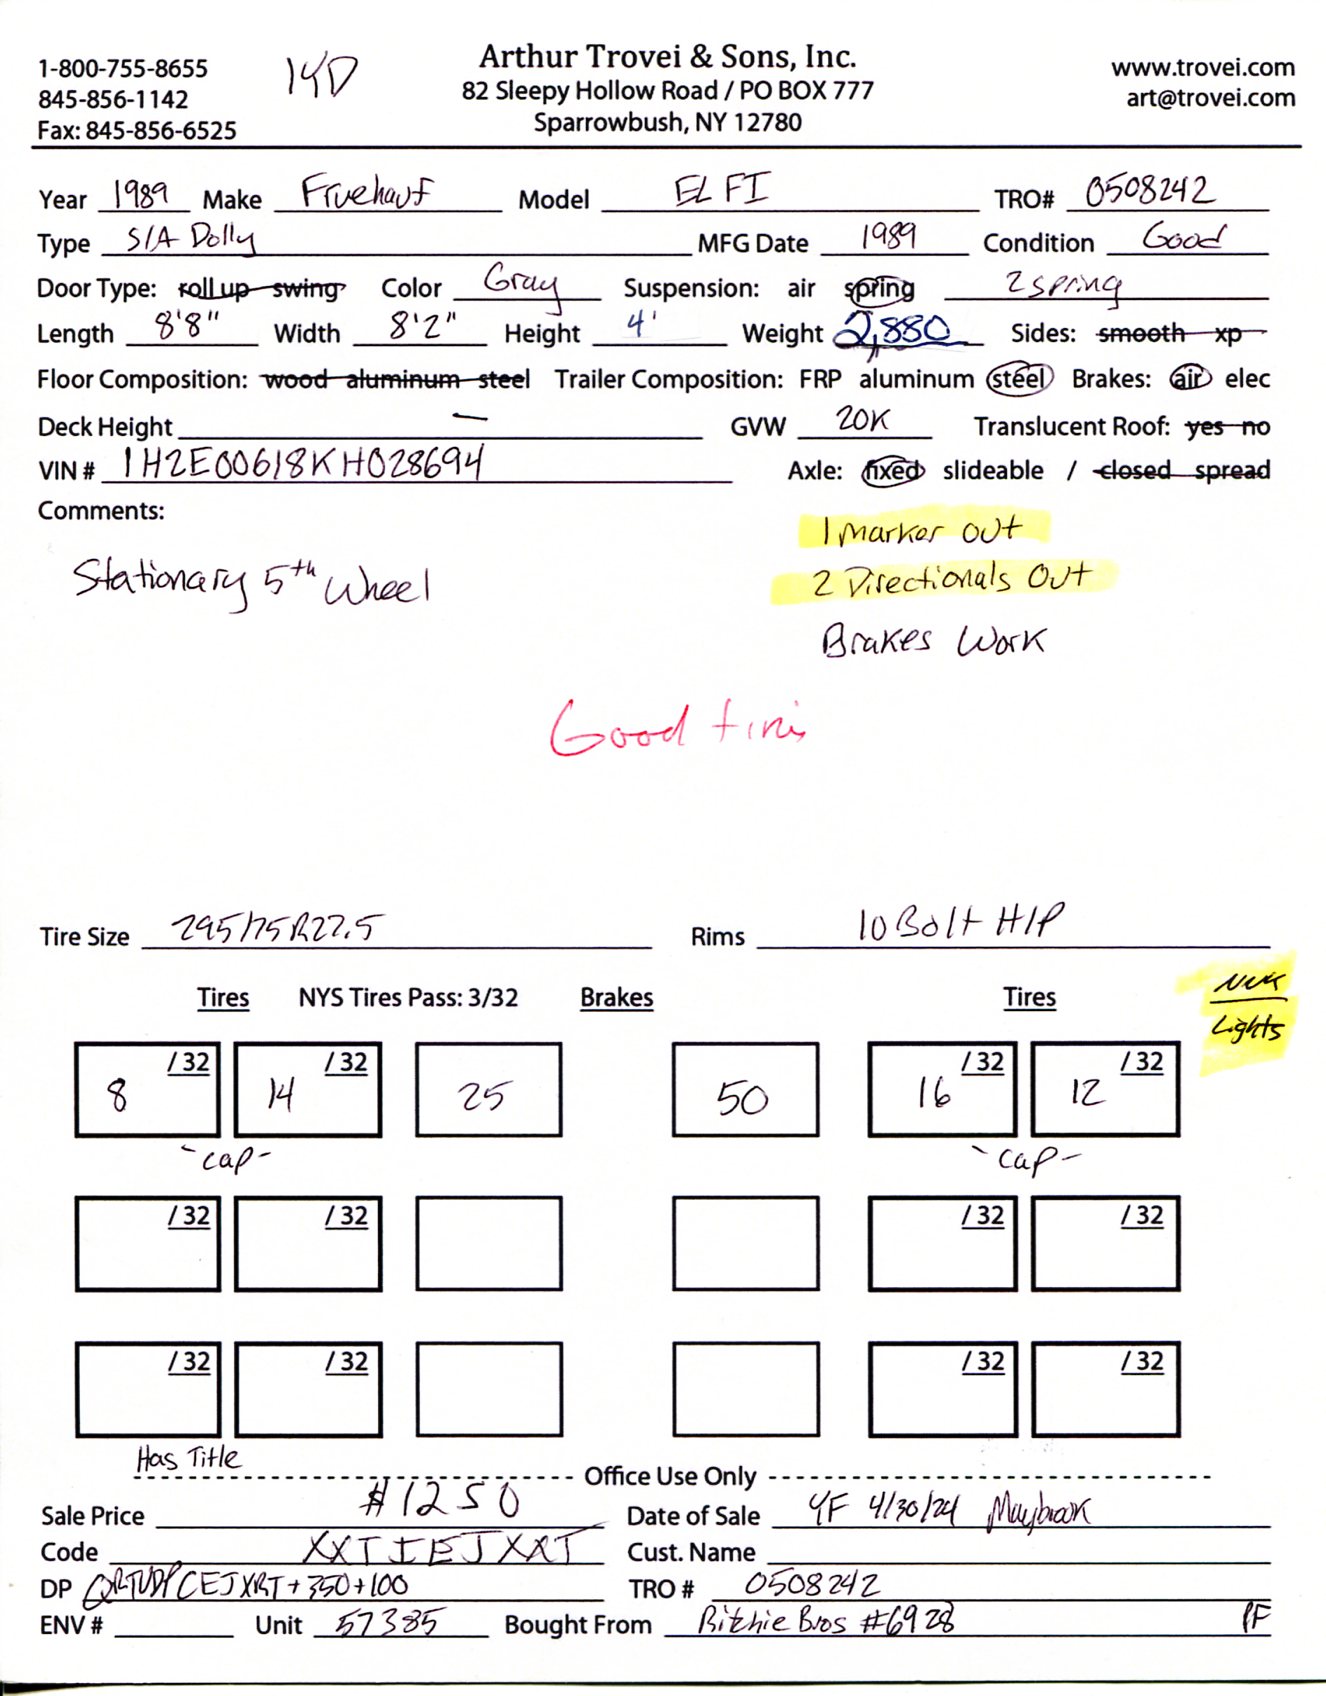 1-800-755-8655
845-856-1142
Fax: 845-856-6525
14D
Arthur Trovei & Sons, Inc.
82 Sleepy Hollow Road / PO BOX 777
Sparrowbush, NY 12780
www.trovei.com
art@trovei.com
Year 1989 Make Fruehauf Model ELFI TRO# 0508242
Type S/A Dolly MFG Date 1989 Condition Good
Door Type: roll up swing Color Gray Suspension: air spring 2 spring
Length 8'8" Width 8'2" Height 4' Weight 2,880 Sides: smooth xp
Floor Composition: wood aluminum steel Trailer Composition: FRP aluminum steel Brakes: air elec
Deck Height — GVW 20K Translucent Roof: yes no
VIN # 1H2E00618KH028694 Axle: fixed slideable / closed spread
Comments:
1 Marker out
Stationary 5th Wheel
2 Directionals Out
Brakes Work
Good tires
Tire Size 295/75R22.5 Rims 10 Bolt H/P
Tires NYS Tires Pass: 3/32 Brakes Tires
Lights
8 /32 14 /32 25 50 16 /32 12 /32
-cap- -cap-
/32 /32 /32 /32
/32 /32 /32 /32
Has Title
Office Use Only
Sale Price $1250 Date of Sale YF 4/30/24 Maybrook
Code XXTIEJXRT Cust. Name
DP QRTUDPCEJXRT+350+100 TRO # 0508242
ENV # Unit 57385 Bought From Ritchie Bros #6928 PF